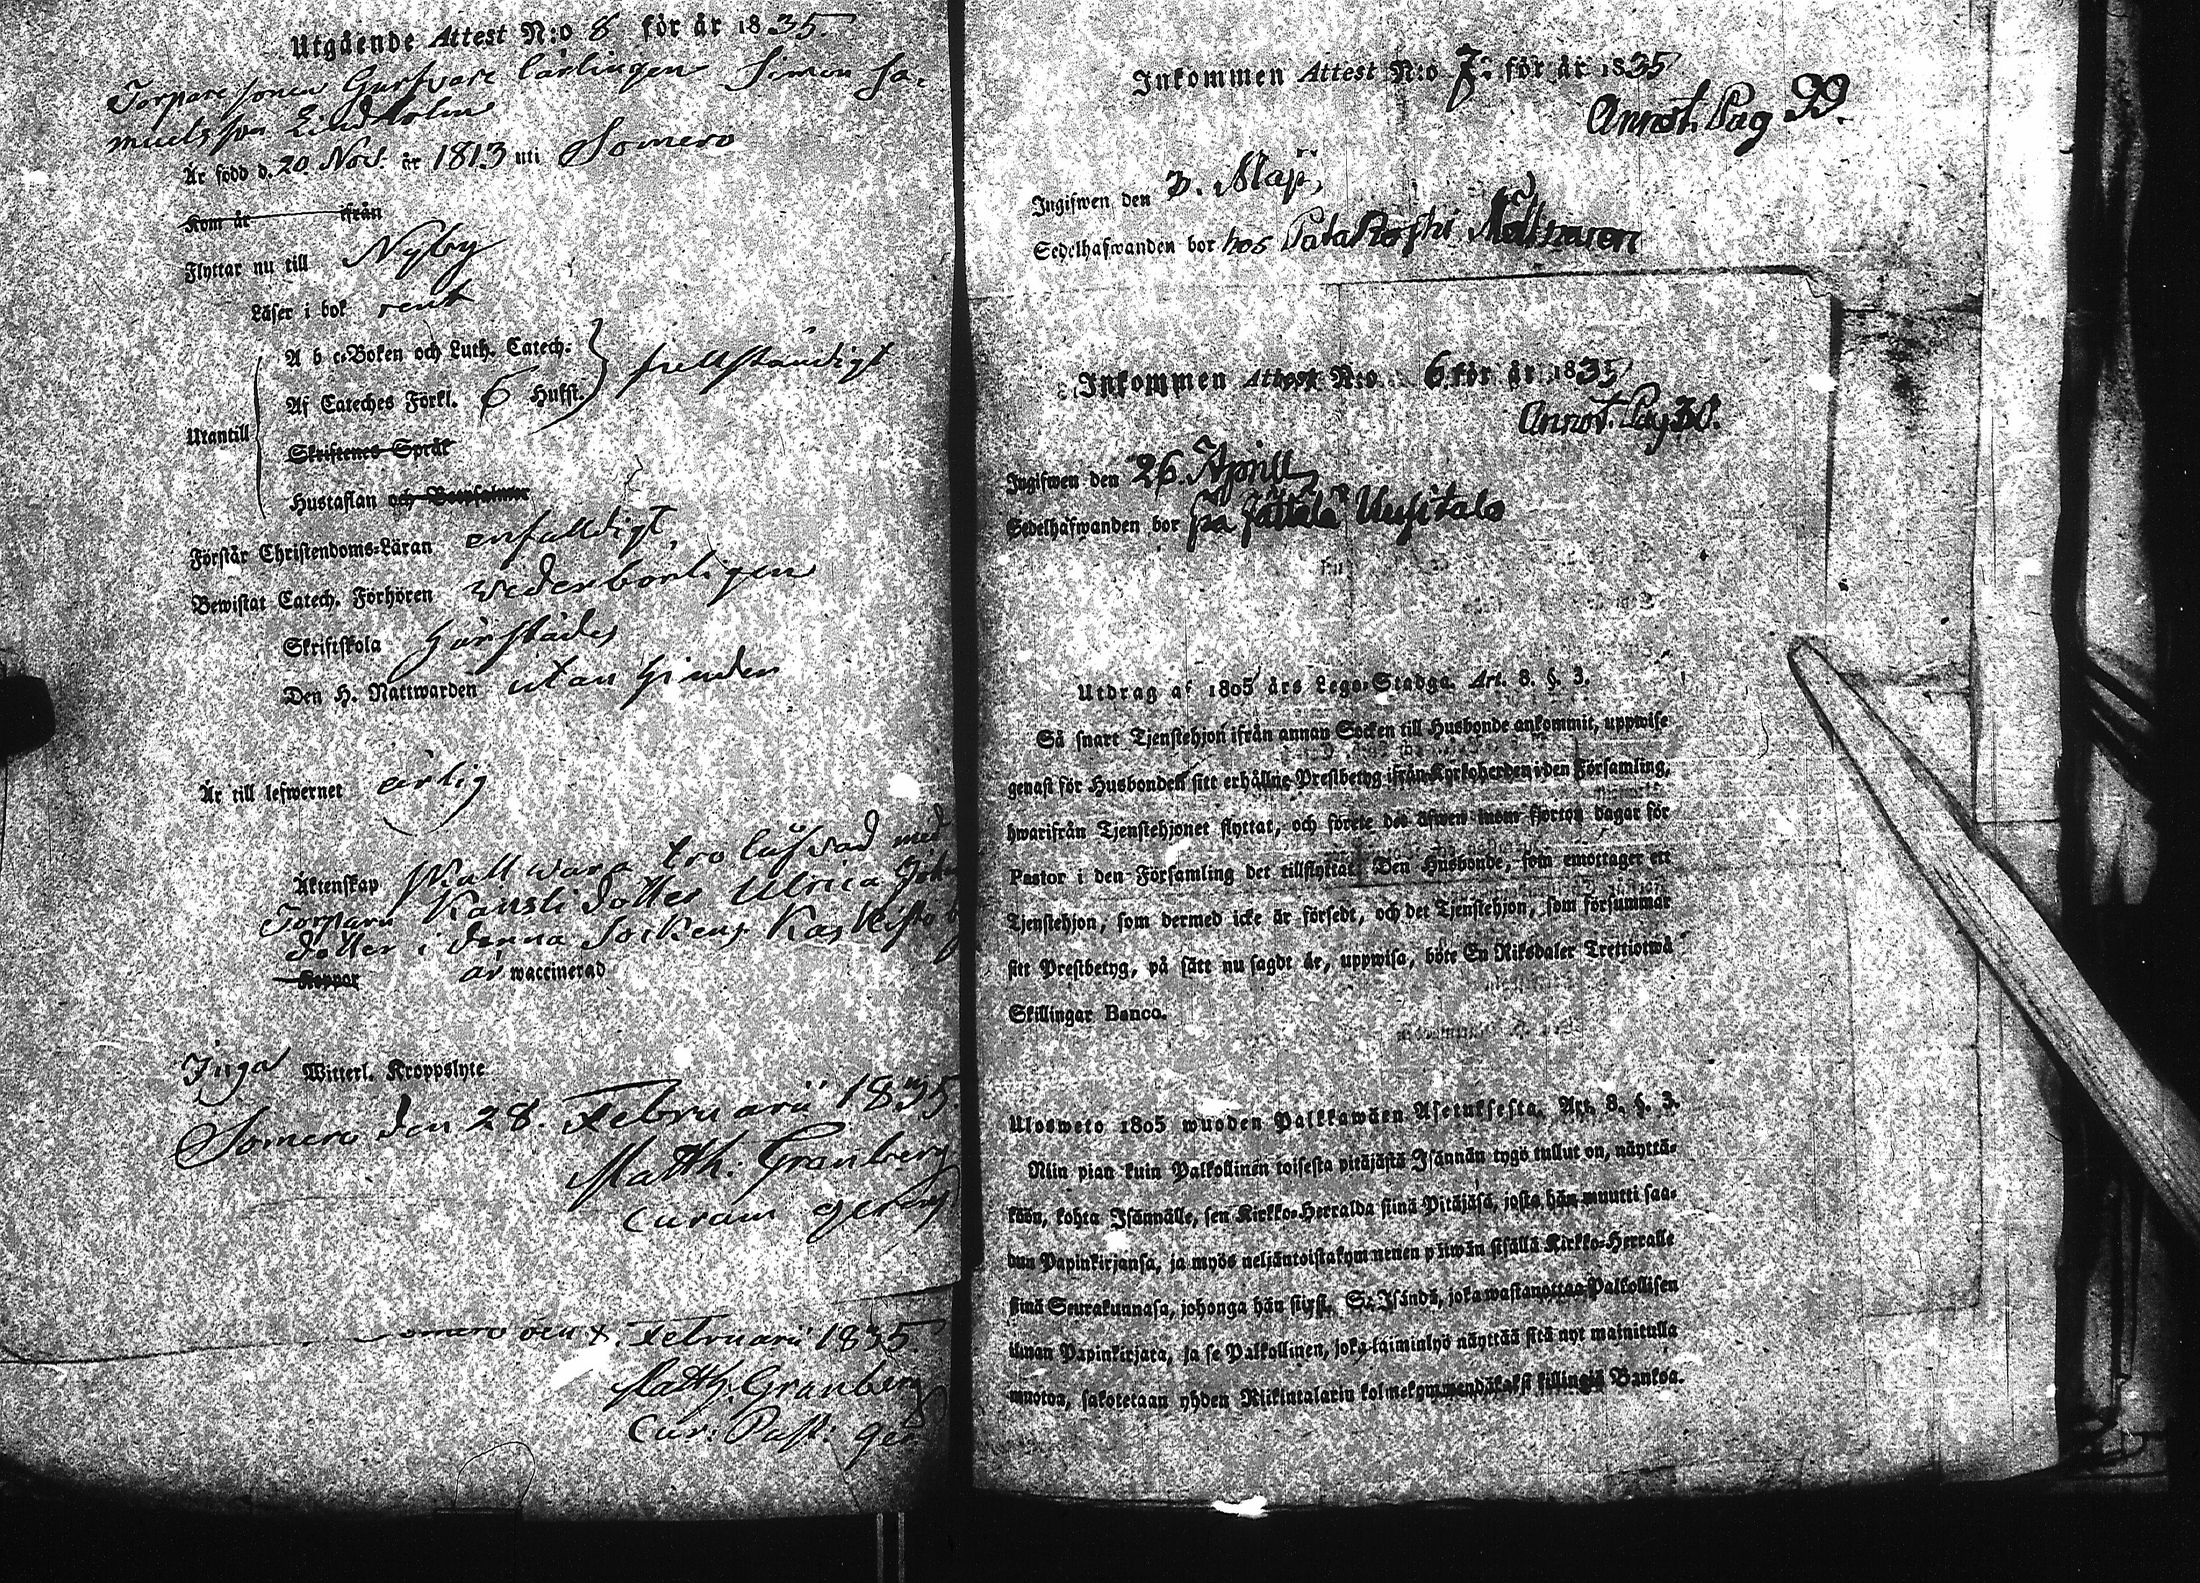 Utgående Attest N:o 8 för år 1835.
Torpare sonen Garfvare Lärlingen Simon Sa-
muelsson Lindholm
Är född d. 20 Nov. år 1813 uti Somero
Kom år ifrån
Flyttar nu till Nyby
Läser i bok rent
A b c-Boken och Luth. Catech.
Af Cateches Förkl. 6 Hufst. fullständigt
Utantill
Skriftenes Språk
Hustaflan och
Förstår Christendoms-Läran enfaldigt,
Bewistat Catech. Förhören wederborligen
Skriftskola härstädes
Den H. Nattwarden utan hinder
Är till lefwernet ärlig
Äktenskap skall wara trolofwad med
Torparn dotter Ulrica
dotter i denna Sockens
Koppor är waccinerad
Inga Witterl. Kroppslyte
Somero den 28. Februarii 1835.
Matth. Granberg
curam gerens
den Februarii 1835.
Matth. Granberg
Cur: Past: ger.
Inkommen Attest N:o 7. för år 1835
Annot. Pag 99.
Ingifwen den 3. Maji,
Sedelhafwanden bor hos
Inkommen Attest N:o 6 för år 1835
Annot. Pag 30.
Ingifwen den 26. Aprill
Sedelhafwanden bor på Jättälä Uusitalo
Utdrag af 1805 års Lego-Stadga. Art. 8. §. 3.
Så snart Tjenstehjon ifrån annan Socken till Husbonde ankommit, uppwise
genast för Husbonden sitt erhållne Prestbetyg ifrån Kyrkoherden i den Församling,
hwarifrån Tjenstehjonet flyttat, och förete det äfwen inom fjorton dagar för
Pastor i den Församling det tillflyttat. Den Husbonde, som emottager ett
Tjenstehjon, som dermed icke är försedt, och det Tjenstehjon, som försummar
sitt Prestbetyg, på sätt nu sagdt är, uppwisa, böte En Riksdaler Trettiotwå
Skillingar Banco.
Ulosweto 1805 wuoden Palkkawäen Asetuksesta. Art. 8. §. 3.
Niin pian kuin Palkollinen toisesta pitäjästä Isännän tygö tullut on, näyttä-
köön, kohta Isännälle, sen Kirkko-Herralda siinä Pitäjäsä, josta hän muutti saa-
dun Papinkirjansa, ja myös neljäntoistakymmenen päiwän sisällä Kirkko-Herralle
siinä Seurakunnasa, johonga hän siirsi. Se Isändä, joka wastanottaa Palkollisen
ilman Papinkirjata, ja se Palkollinen, joka laiminlyö näyttää sitä nyt mainitulla
muotoa, sakotetaan yhden Riikintalarin kolmekymmendäkaksi killingiä Bankoa.